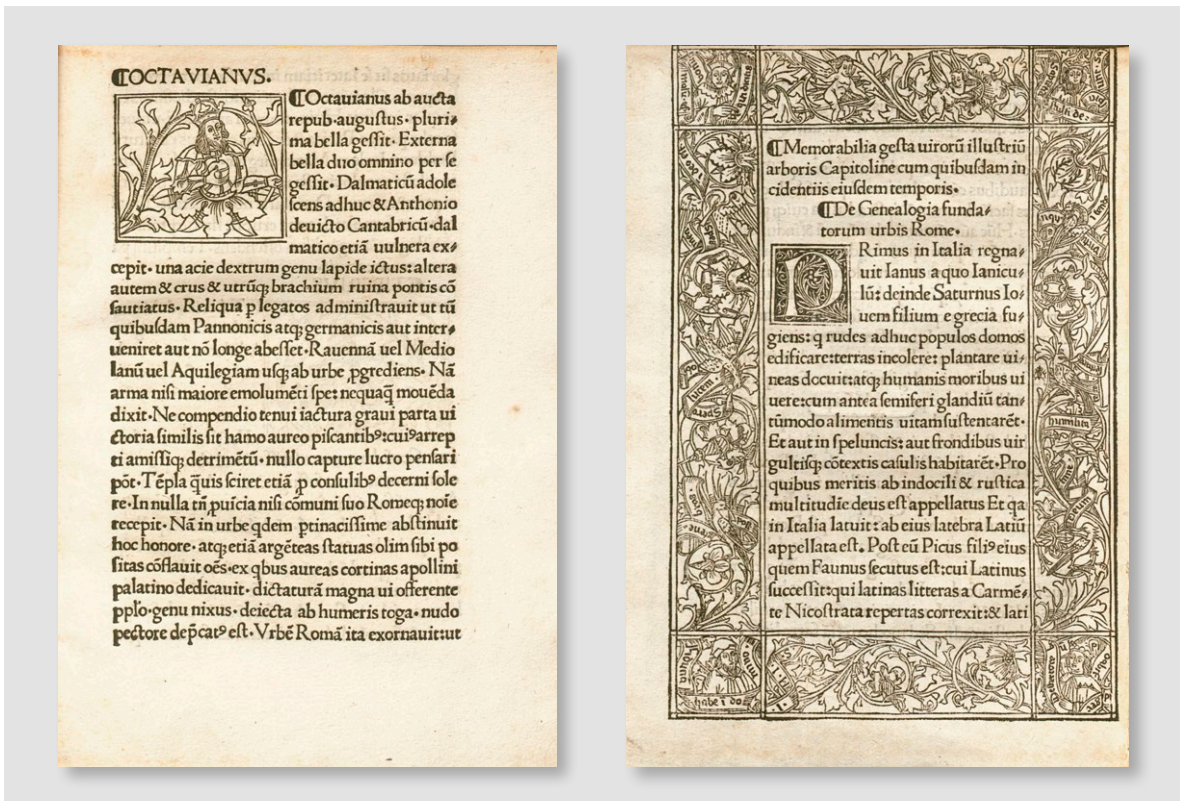 ⁋OCTAVIANVS.
⁋Octauianus ab aucta
repub·augustus· pluri⸗
ma bella geſſit· Externa
bella duo omnino per ſe
geſſit· Dalmaticū adole
ſcens adhuc & Anthonio
deuicto Cantabricū·dal
matico etiā uulnera ex⸗
cepit· una acie dextrum genu lapide ictus: altera
autem & crus & utrūq; brachium ruina pontis cō
ſautiatus· Reliqua ꝑ legatos adminiſtrauit ut tū
quibuſdam Pannonicis atq; germanicis aut inter⸗
ueniret aut nō longe abeſſet· Rauennā uel Medio
lanū uel Aquilegiam uſq; ab urbe ꝓgrediens· Nā
arma niſi maiore emolumēti ſpe: nequaq̄ mouēda
dixit·Ne compendio tenui iactura graui parta ui
ctoria ſimilis ſit hamo aureo piſcantibꝰ:cuiꝰarrep
ti amiſſiq; detrimētū· nullo capture lucro penſari
pōt·Tēpla q̄uis ſciret etiā ꝓ conſulibꝰ decerni ſole
re·In nulla tn̄ ꝓuīcia niſi cōmuni ſuo Romeq; noīe
recepit· Nā in urbe qdem ꝑtinaciſſime abſtinuit
hoc honore· atq; etiā argēteas ſtatuas olim ſibi po
ſitas cōflauit oēs·ex qbus aureas cortinas apollini
palatino dedicauit· dictaturā magna ui offerente
pplo·genu nixus· deiecta ab humeris toga· nudo
pectore dep̄catꝰ eſt·Vrbē Romā ita exornauit:ut
⁋Memorabilia geſta uirorū illuſtriū
arboris Capitoline cum quibuſdam in
cidentiis eiuſdem temporis·
⁋De Genealogia funda⸗
torum urbis Rome·
PRimus in Italia regna⸗
uit Ianus a quo Ianicu⸗
lū: deinde Saturnus Io⸗
uem filium e grecia fu⸗
giens: q rudes adhuc populos domos
edificare:terras incolere: plantare ui⸗
neas docuit:atq; humanis moribus ui
uere:cum antea ſemiferi glandiū tan⸗
tūmodo alimentis uitam ſuſtentarēt·
Et aut in ſpeluncis: aut frondibus uir
gultiſq; cōtextis caſulis habitarēt·Pro
quibus meritis ab indocili & ruſtica
multitudīe deus eſt appellatus Et qa
in Italia latuit: ab eius latebra Latiū
appellata eſt. Poſt eū Picus filiꝰ eius
quem Faunus ſecutus eſt:cui Latinus
ſucceſſit:qui latinas litteras a Carmē⸗
te Nicoſtrata repertas correxit:& lati
lucem
Spera
humilita
habe ī do